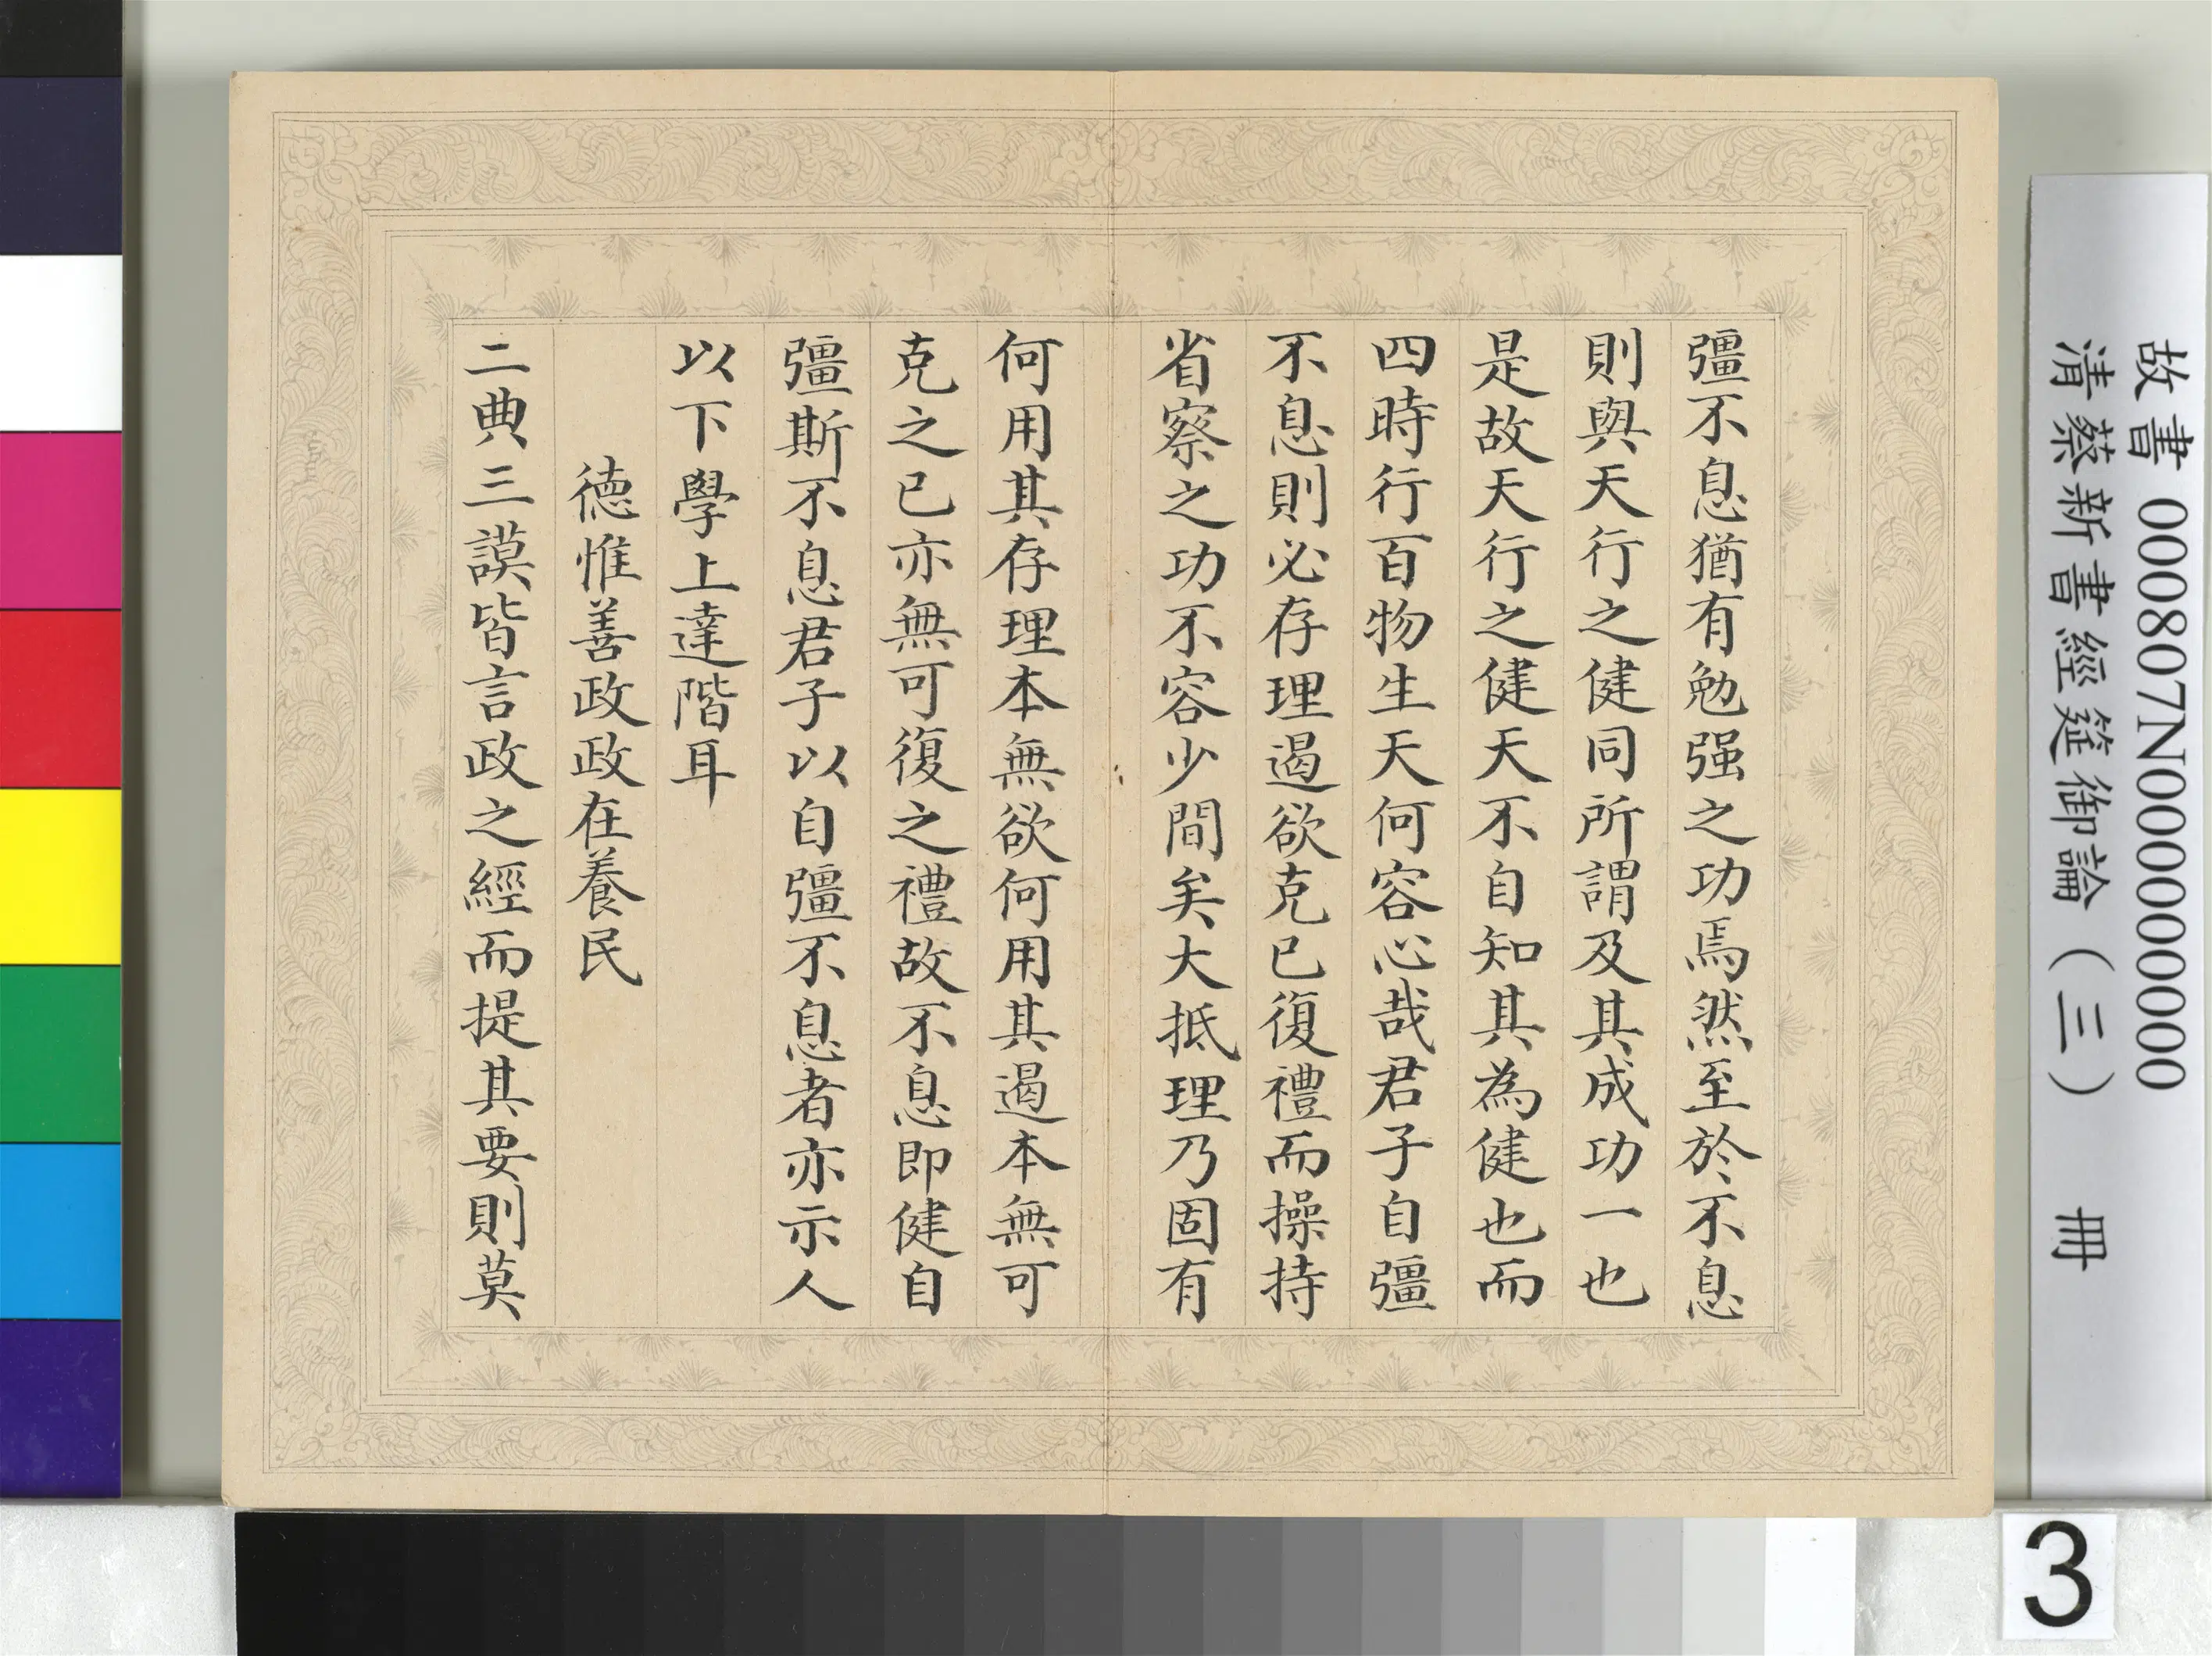 彊不息猶有勉强之功焉然至於不息
則與天行之健同所謂及其成功一也
是故天行之健天不自知其為健也而
四時行百物生天何容心哉君子自彊
不息則必存理遏欲克己復禮而操持
省察之功不容少間矣大抵理乃固有
何用其存理本無欲何用其遏本無可
克之已亦無可復之禮故不息即健自
彊斯不息君子以自彊不息者亦示人
以下學上達階耳
德惟善政政在養民
二典三謨皆言政之經而提其要則莫
故書 000807N000000000
清蔡新書經筵御論（三） 冊
3